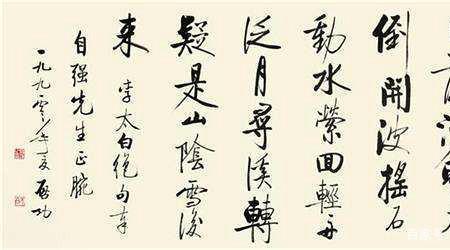 倒開波搖石
動水縈回輕舟
泛月尋溪轉
疑是山陰雪後
來 李太白絕句奉
自强先生正腕
一九九零年夏 启功